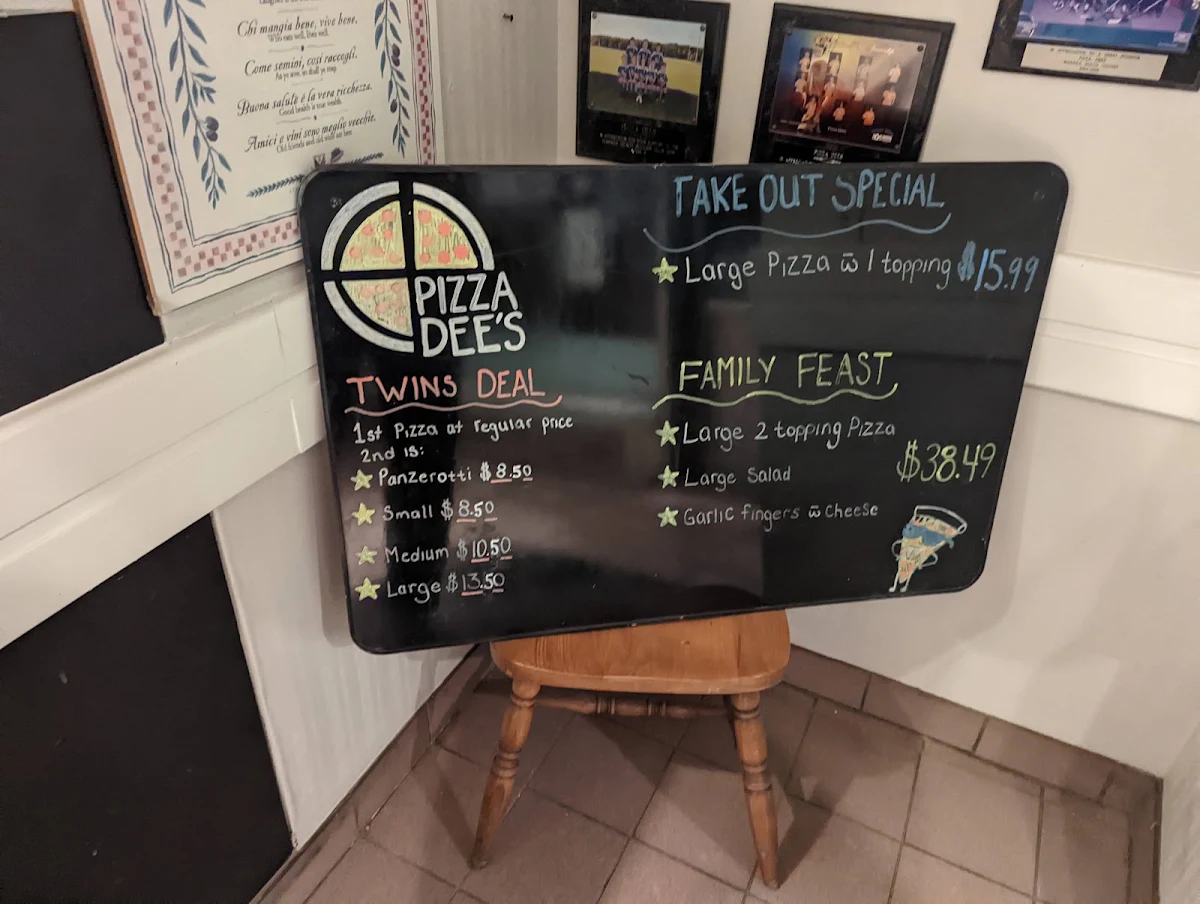 Chi mangia bene, vive bene.
Who eats well, lives well.
Come semini, così raccogli.
As ye sow, so shall ye reap.
Buona salute è la vera ricchezza.
Good health is true wealth.
Amici e vini sono meglio vecchie.
Old friends and old wine are best.
PIZZA
DEE'S
TWINS DEAL
1st Pizza at regular price
2nd is:
Panzerotti $8.50
Small $8.50
Medium $10.50
Large $13.50
TAKE OUT SPECIAL
Large Pizza w̄ 1 topping $15.99
FAMILY FEAST
Large 2 topping Pizza
Large Salad
Garlic fingers w̄ cheese
$38.49